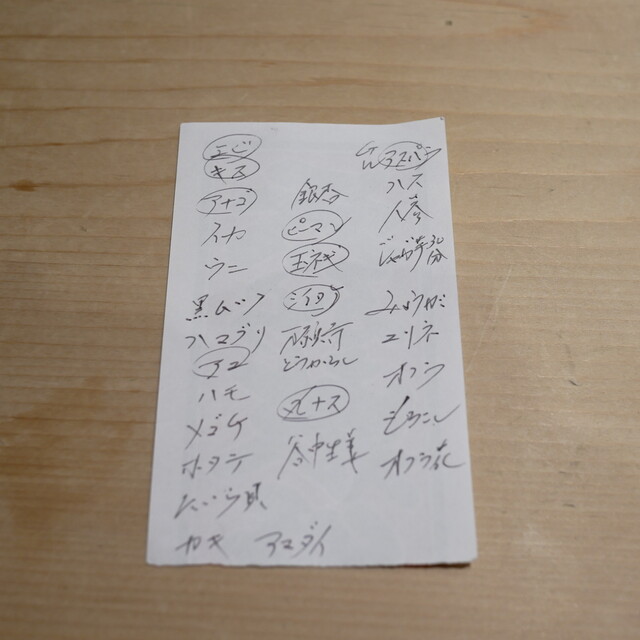 エビ
キス
アナゴ
イカ
ウニ
黒ムツ
ハマグリ
タコ
ハモ
メゴチ
ホタテ
たいら貝
カキ
アマダイ
銀杏
ピーマン
玉ネギ
シイタケ
万願寺
とうがらし
丸ナス
谷中生姜
アスパラ
ハス
人参
じゃが芋30分
みょうが
ユリネ
オクラ
もろこし
オクラ花